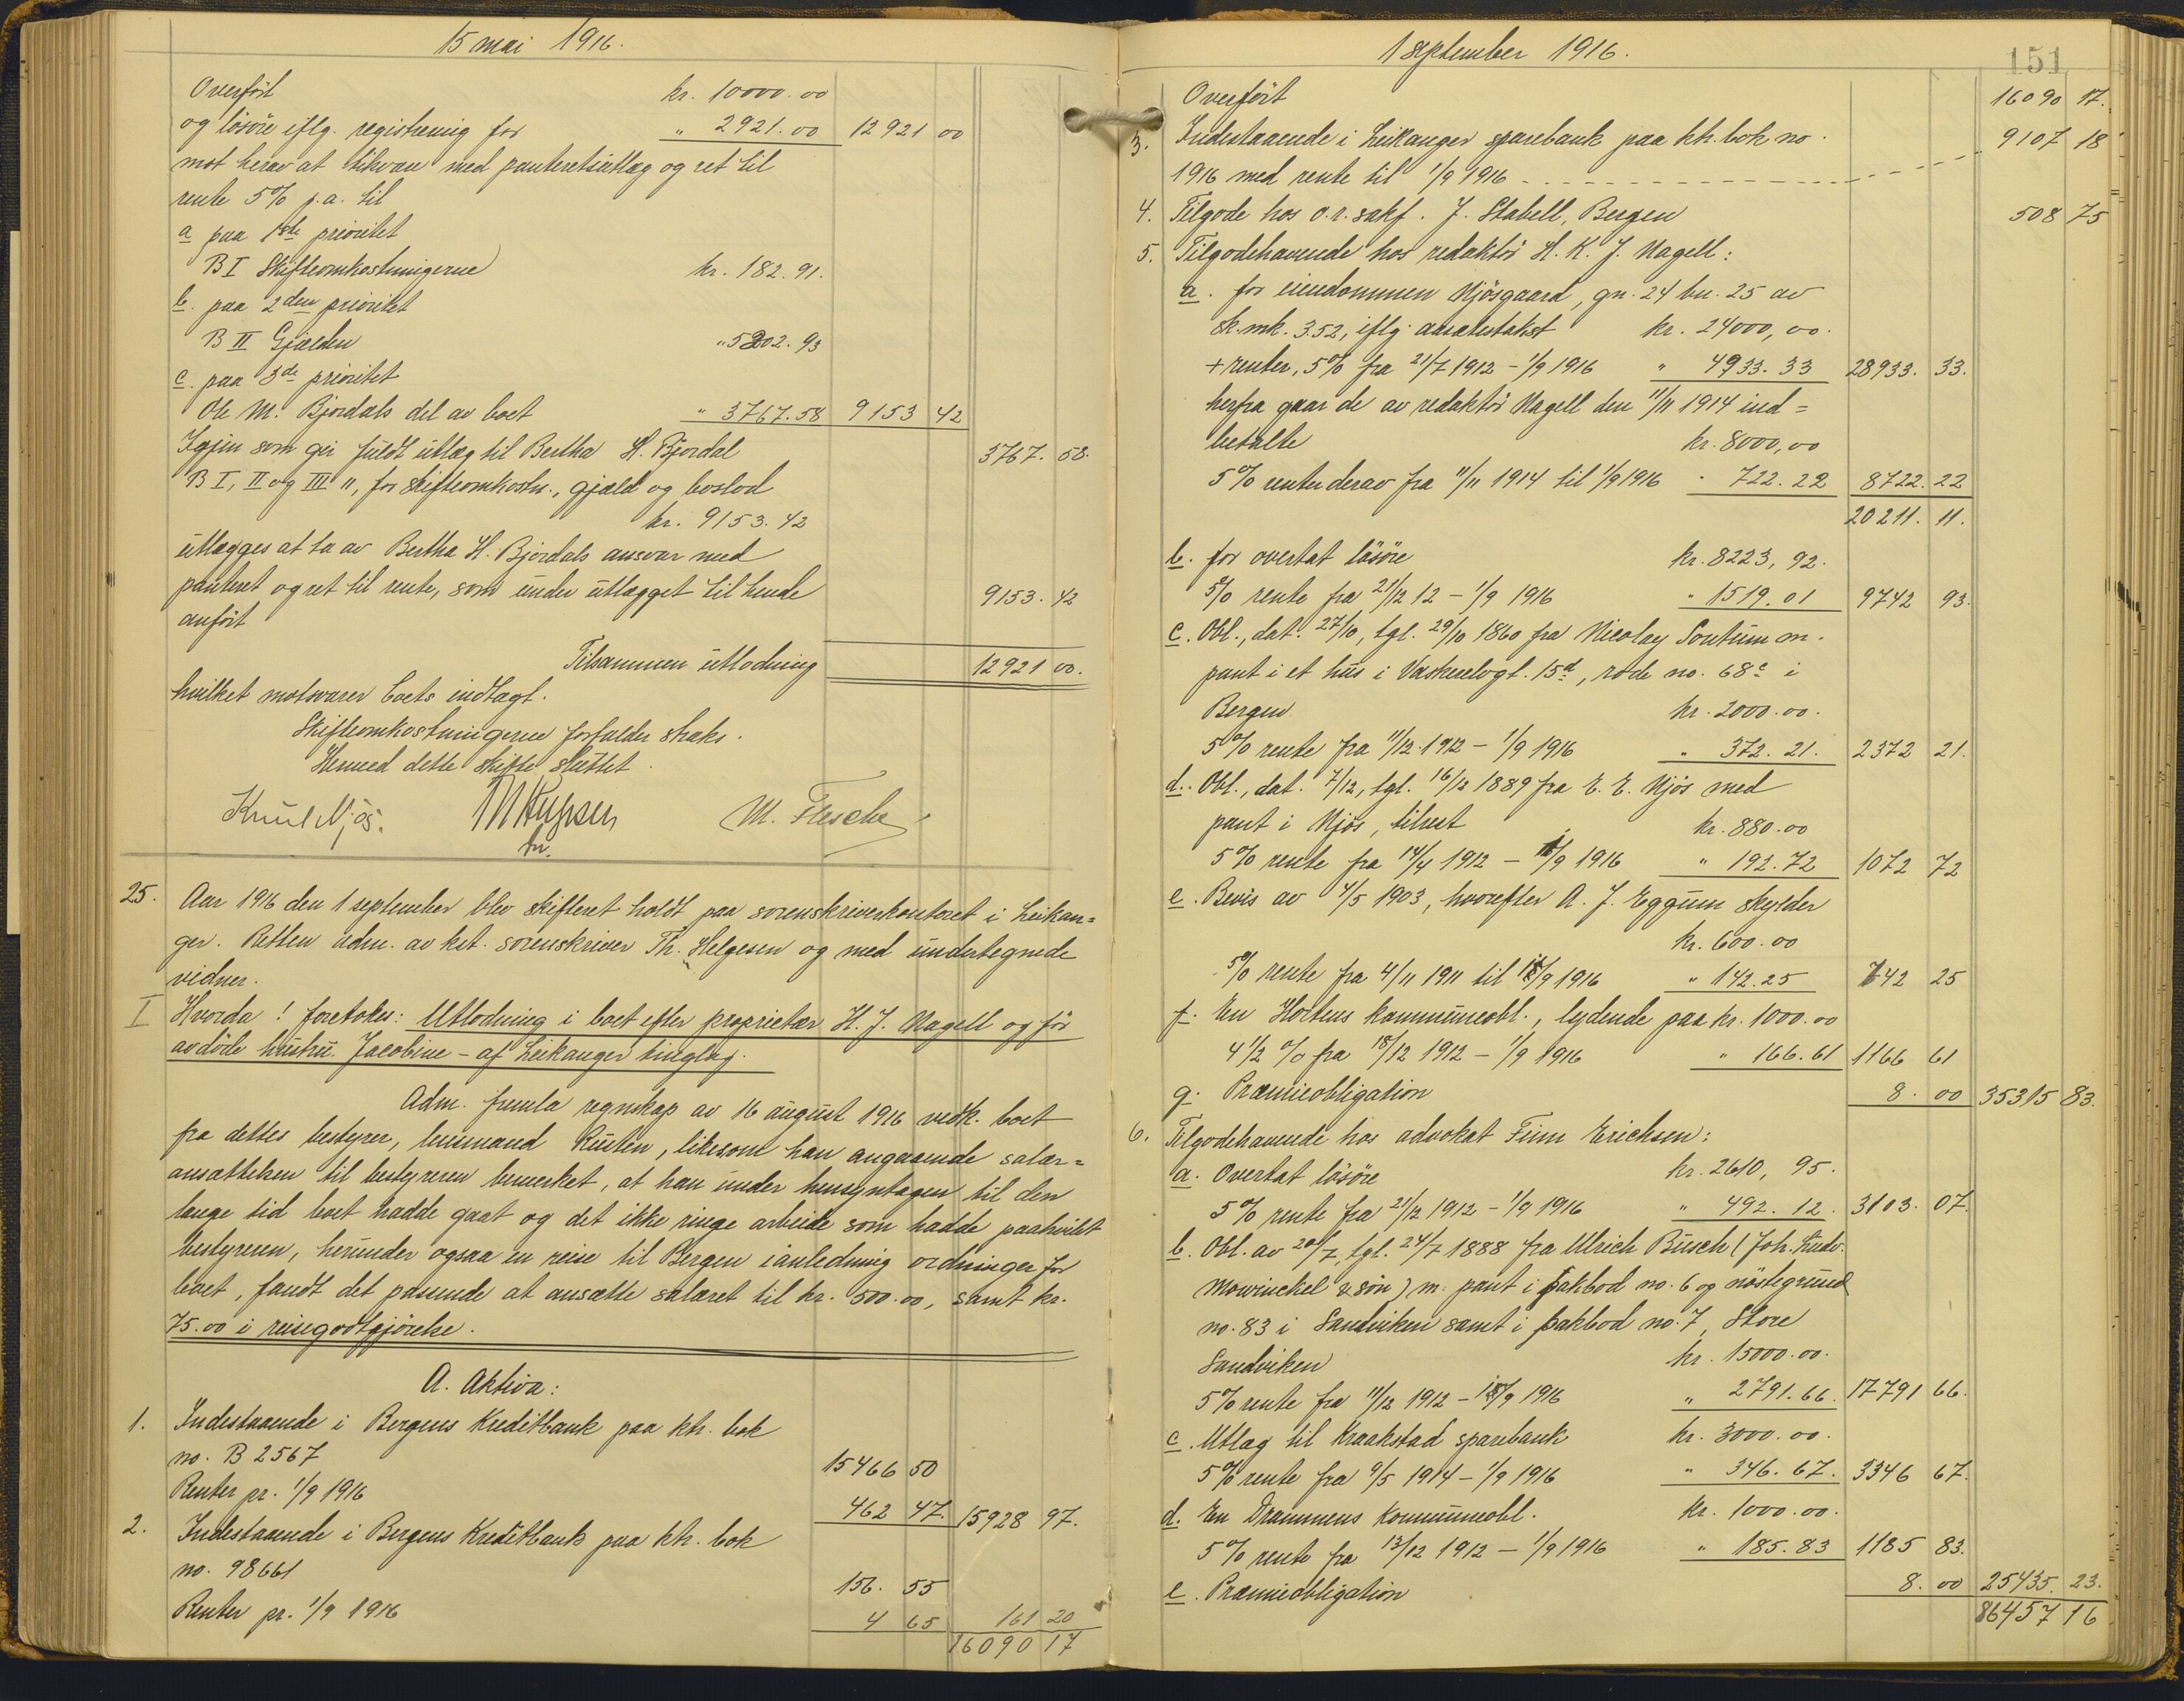 15 mai 1916.
Overført kr. 10000.00
og løsøre iflg. registrering for " 2921.00 12921 00
mot herav at tilsvare med panteretsutlæg og ret til
rente 5% p.a. til
a paa 1ste prioritet
B I Skifteomkostningerne kr. 182.91.
b. paa 2den prioritet
B II Gjælden " 5202.93
c. paa 3de prioritet
Ole M. Bjordals del av boet " 3767.58 9153 42
Igjen som gir fuldt utlæg til Bertha H. Bjordal 3767.58.
B I, II og III ", for skifteomkostn., gjæld og boslod
kr. 9153.42
utlægges at ta av Bertha H. Bjordals ansvar med
panteret og ret til rente, som under utlægget til hende
anført 9153.42
Tilsammen utlodning 12921 00.
hvilket motsvarer boets indtægt.
Skifteomkostningerne forfalder straks.
Hermed dette skifte sluttet.
Knut Njøs. M. Flesche
25. Aar 1916 den 1 september blev skifteret holdt paa sorenskriverkontoret i Leikan=
ger. Retten adm. av kst. sorenskriver Th. Helgesen og med undertegnede
vidner.
I Hvorda! foretokes: Utlodning i boet efter proprietær H. J. Nagell og før
avdøde hustru Jacobine - af Leikanger tinglag.
Adm. fremla regnskap av 16 august 1916 vedk. boet
fra dettes bestyrer, lensmand Kusten, likesom han angaaende salær=
ansættelsen til bestyreren bemerket, at han under hensyntagen til den
lange tid boet hadde gaat og det ikke ringe arbeide som hadde paahvilt
bestyreren, herunder ogsaa en reise til Bergen i anledning ordninger for
boet, fandt det passende at ansætte salæret til kr. 500.00, samt kr.
75.00 i reisegodtgjørelse.
A. Aktiva:
1. Indestaaende i Bergens Kreditbank paa ktr. bok
no. B 2567 15466 50
Renter pr. 1/9 1916 462 47. 15928 97.
2. Indestaaende i Bergens Kreditbank paa ktr. bok
no. 98661 156. 55
Renter pr. 1/9 1916 4 65 161 20
16090 17
1 september 1916.
151
Overført 16090 17.
3. Indestaaende i Leikanger sparebank paa ktr. bok no. 9107 18
1916 med rente til 1/9 1916
4. Tilgode hos o.r.sakf. J. Stabell, Bergen 508 75
5. Tilgodehavende hos redaktør H. K. J. Nagell:
a. for eiendommen Njøsgaard, gn. 24 bn. 25 av
sk.mk. 3.52, iflg. ansættelst kr. 24000,00.
+ renter, 5% fra 21/7 1912 - 1/9 1916 " 4933.33 28933. 33.
herfra gaar de av redaktør Nagell den 11/11 1914 ind=
betalte kr. 8000,00
5% renter derav fra 11/11 1914 til 1/9 1916 " 722.22 8722. 22
20211. 11.
b. for overtat løsøre kr. 8223,92.
5% rente fra 21/12 12 - 1/9 1916 " 1519.01 9742 93.
c. Obl., dat. 27/10, tgl. 29/10 1860 fra Nicolay Sontum m.
pant i et hus i Vaskerelvgt. 15d, rode no. 68c i
Bergen kr. 2000.00.
5% rente fra 11/12 1912 - 1/9 1916 " 372.21. 2372 21.
d. Obl., dat. 7/12, tgl. 16/12 1889 fra E. E. Njøs med
pant i Njøs, tilrest kr. 880.00
5% rente fra 14/4 1912 - 1/9 1916 " 192.72 1072 72
e. Bevis av 4/5 1903, hvorefter A. J. Eggum skylder
kr. 600.00
5% rente fra 4/11 1911 til 1/9 1916 " 142.25 742 25
f. En Hortens kommuneobl., lydende paa kr. 1000.00
4 1/2 % fra 18/12 1912 - 1/9 1916 " 166.61 1166 61
g. Præmieobligation 8. 00 35315 83.
6. Tilgodehavende hos advokat Finn Erichsen:
a. Overtat løsøre kr. 2610,95.
5% rente fra 21/12 1912 - 1/9 1916 " 492.12. 3103. 07.
b. Obl. av 20/7, tgl. 24/7 1888 fra Ulrich Büsch (Joh. Ludv.
Mowinckel & søn) m. pant i pakbod no. 6 og nøstegrund
no. 83 i Sandviken samt i pakbod no. 7, Store
Sandviken kr. 15000.00.
5% rente fra 11/12 1912 - 1/9 1916 " 2791.66. 17791 66.
c. Utlæg til Kraakstad sparebank kr. 3000.00.
5% rente fra 9/5 1914 - 1/9 1916 " 346.67. 3346 67.
d. En Drammens kommuneobl. kr. 1000.00.
5% rente fra 13/12 1912 - 1/9 1916 " 185.83 1185 83.
e. Præmieobligation 8. 00 25435. 23.
86457 16